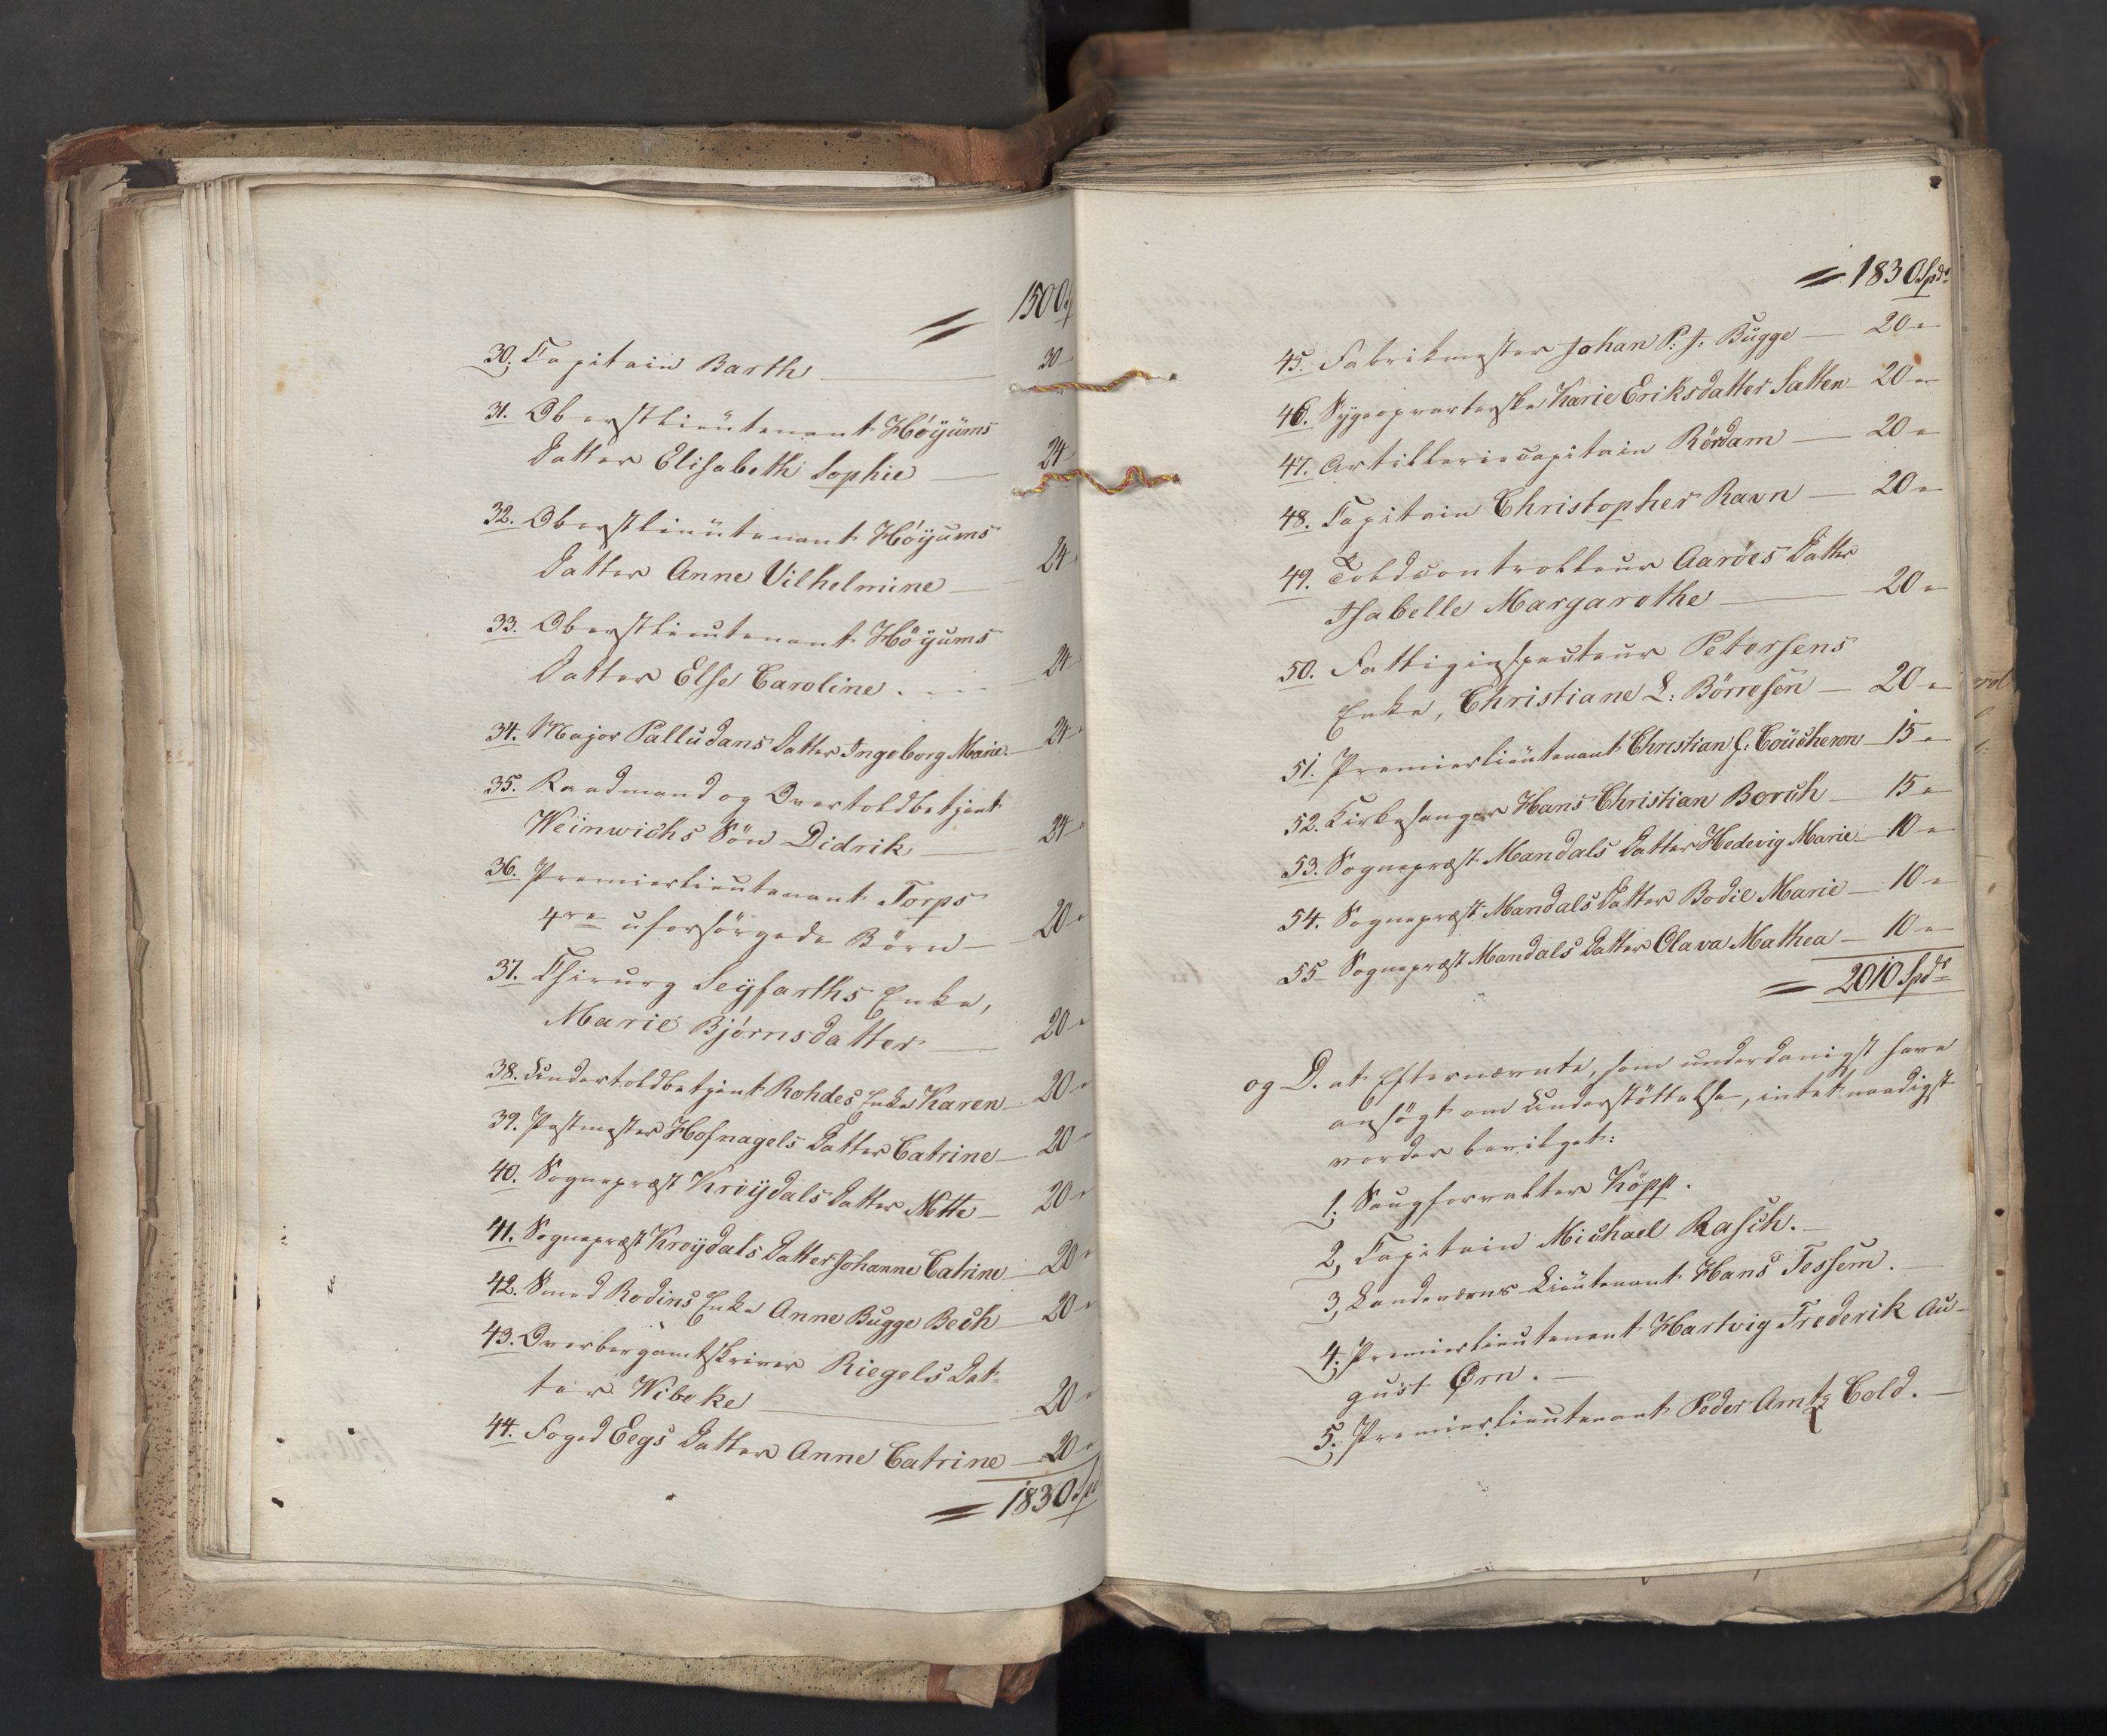 = 1500
30. Capitain Barth — 30
31. Oberstlieutenant Höyums
Datter Elisabeth Sophie — 24
32. Oberstlieutenant Höyums
Datter Anne Vilhelmine — 24
33. Oberstlieutenant Höyums
Datter Else Caroline . — 24
34. Major Palludans Datter Ingeborg Marie — 24
35. Raadmand og Overtoldbetjent
Weinwichs Sön Didrik — 24
36. Premierlieutenant Torps
4re uforsörgede Börn — 20
37. Chirurg Seyfarths Enke,
Marie Björnsdatter — 20
38. Undertoldbetjent Rohdes Enke Karen — 20
39. Postmester Hofnagels Datter Catrine — 20
40. Sognepræst Kröydals Datter Mette — 20
41. Sognepræst Kröydals Datter Johanne Catrine — 20
42. Smed Rodins Enke Anne Bugge Bech — 20
43. Overbergamtskriver Riegels Dat-
ter Wibeke — 20
44. Foged Eegs Datter Anne Catrine — 20
= 1830 Spd
= 1830 Spdr
45. Fabrikmester Johan P. J. Bugge — 20 "
46. Sygeopvarterske Karie Eriksdatter Satten — 20 "
47. Artilleriecapitain Rördam — 20 "
48. Capitain Christopher Ravn — 20 "
49. Toldcontrolleur Aaröes Datter
Isabelle Margarethe — 20 "
50. Fattiginspecteur Petersens
Enke, Christiane L: Börresen — 20 "
51. Premierlieutenant Christian G. Coucheron — 15 "
52. Kirkesanger Hans Christian Borch — 15 "
53. Sognepræst Mandals Datter Hedevig Marie — 10 "
54. Sognepræst Mandals Datter Bodil Marie — 10 "
55 Sognepræst Mandals Datter Olava Mathea — 10 "
= 2010 Spdr
og D. at Efternævnte, som underdanigst have
ansögt om Understöttelse, intet naadigst
vorder bevilget:
1. Saugforvalter Köpp.
2, Capitain Michael Rasch. —
3, Landeværns Lieutenant Hans Tessem. —
4. Premierlieutenant Hartvig Frederik Au-
gust Örn. —
5. Premierlieutenant Peder Amtz Cold. —